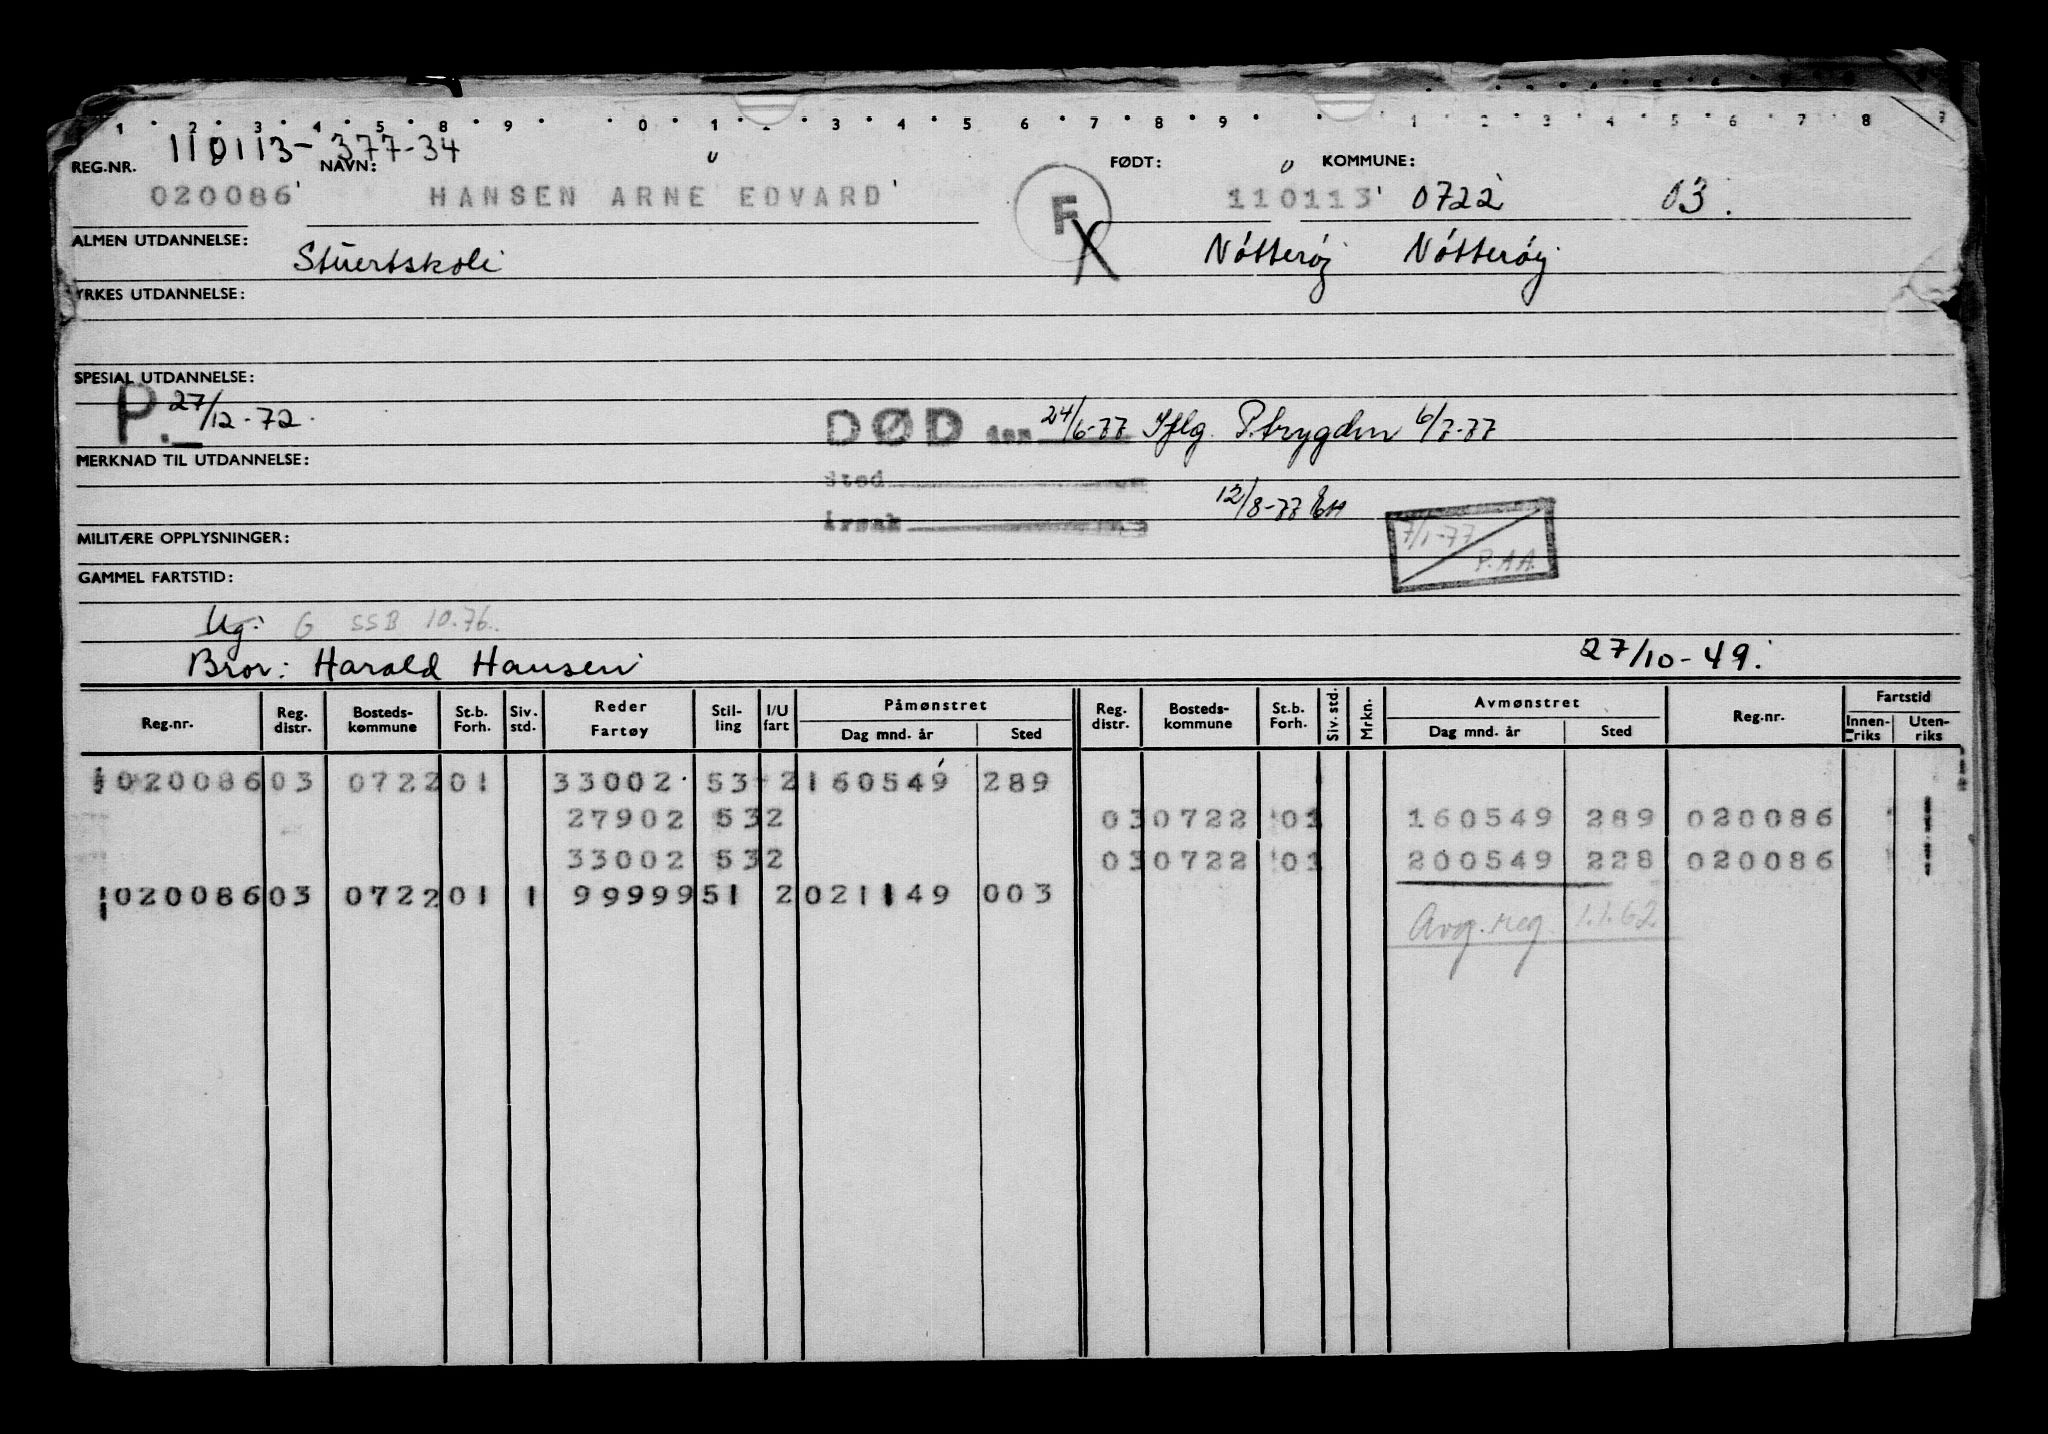 1 2 3 4 5 8 9 0 1 2 3 4 5 6 7 8 9 1 2 3 4 5 6 7 8
110113-377-34
REG.NR. NAVN: FØDT: KOMMUNE:
020086 HANSEN ARNE EDVARD F 110113 0722 03.
ALMEN UTDANNELSE: Stuertskole X Nøtterøy Nøtterøy
YRKES UTDANNELSE:
SPESIAL UTDANNELSE:
P. 27/12-72. DØD den 24/6-77 Iflg. P.trygden 6/7-77
MERKNAD TIL UTDANNELSE:
Sted
12/8-77
Årsak
7/1-77 P.AA.
MILITÆRE OPPLYSNINGER:
GAMMEL FARTSTID:
Ug: G SSB 10.76.
Bror: Harald Hansen 27/10-49.
Reg.nr. Reg. distr. Bosteds-kommune St.b. Forh. Siv. std. Reder Fartøy Stil-ling I/U fart Påmønstret Dag mnd. år Sted Reg. distr. Bosteds-kommune St.b. Forh. Siv. std. Mrkn. Avmønstret Dag mnd. år Sted Reg.nr. Fartstid Innen-riks Uten-riks
020086 03 0722 01 33002 53 2 160549 289
27902 53 2 03 0722 01 160549 289 020086
33002 53 2 03 0722 01 200549 228 020086
020086 03 0722 01 1 99999 51 2 021149 003
Avg. reg. 1.1.62